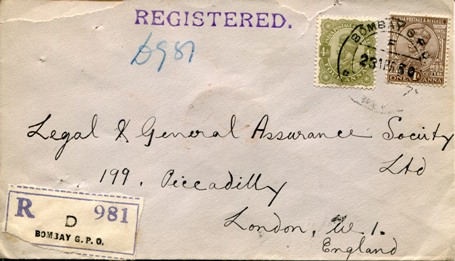 REGISTERED.
D981
BOMBAY G.P.O.
ONE ANNA
Legal & General Assurance Society
Ltd
199. Piccadilly
London, W. 1.
England
R 981
D
BOMBAY G. P. O.